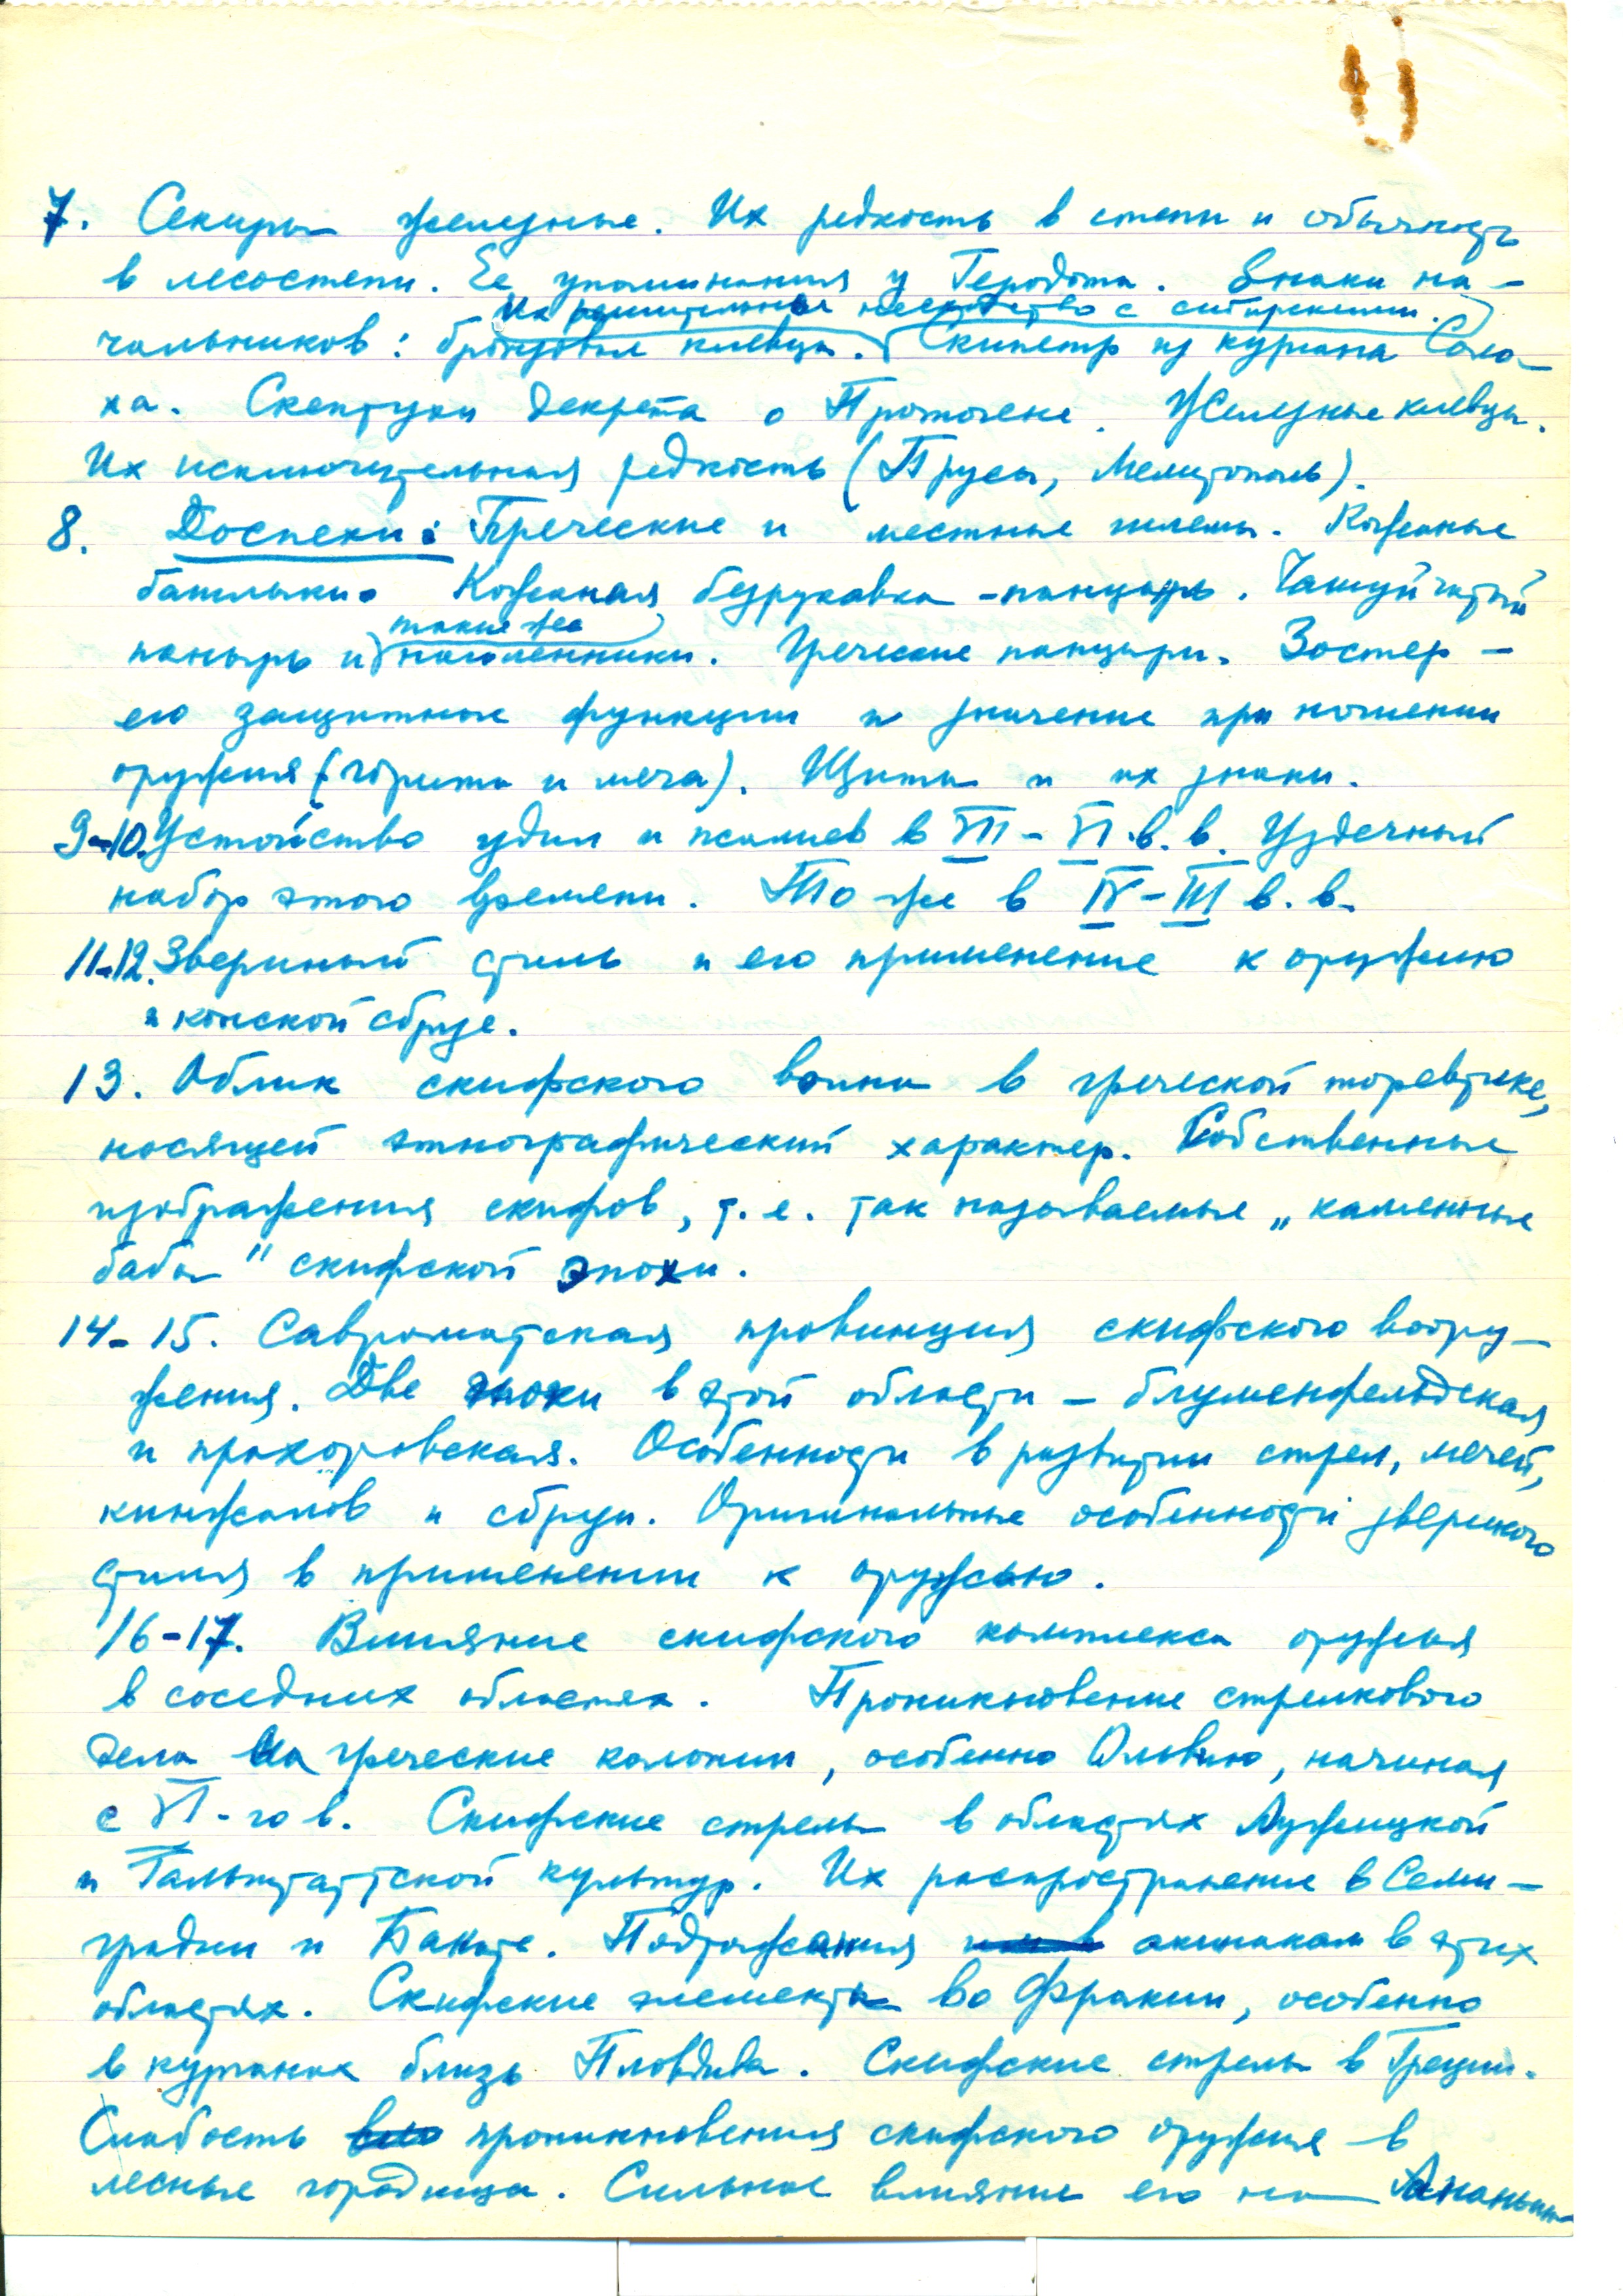 7. Секиры железные. Их редкость в степи и обычность
в лесостепи. Ее упоминания у Геродота. Знаки на-
Их решительное несходство с сибирскими.
чальников: бронзовые клевцы. Скипетр из кургана Соло-
ха. Скептухи декрета о Протогене. Железные клевцы.
Их исключительная редкость (Прусы, Мелитополь).
8. Доспехи: Греческие и местные шлемы. Кожаные
башлыки. Кожаная безрукавка - панцырь. Чашуйчатый
такие же
панцырь и наголенники. Греческие панцыри. Зостер -
его защитные функции и значение при ношении
оружия (горита и меча). Щиты и их знаки.
9-10. Устойство удил и псалиев в VII - VI в. в. Уздечный
набор этого времени. То же в IV - III в. в.
11-12. Звериный стиль и его применение к оружию
и конской сбруе.
13. Облик скифского воина в греческой торевтике,
носящей этнографический характер. Собственные
изображения скифов, т. е. так называемые „каменные
бабы" скифской эпохи.
14-15. Савроматская провинция скифского воору-
жения. Две эпохи в этой области - блуменфельдская
и прохоровская. Особенности в развитии стрел, мечей,
кинжалов и сбруи. Оригинальные особенности звериного
стиля в применении к оружью.
16-17. Влияние скифского комплекса оружия
в соседних областях. Проникновение стрелкового
дела на греческие колонии, особенно Ольвию, начиная
с VI-го в. Скифские стрелы в областях Лужицкой
и Гальштаттской культур. Их распространение в Семи-
градии и Банате. Подражания акинакам в этих
областях. Скифские элементы во Фракии, особенно
в курганах близь Пловдива. Скифские стрелы в Греции.
Слабость проникновения скифского оружия в
лесные городища. Сильное влияние его на Ананьин-